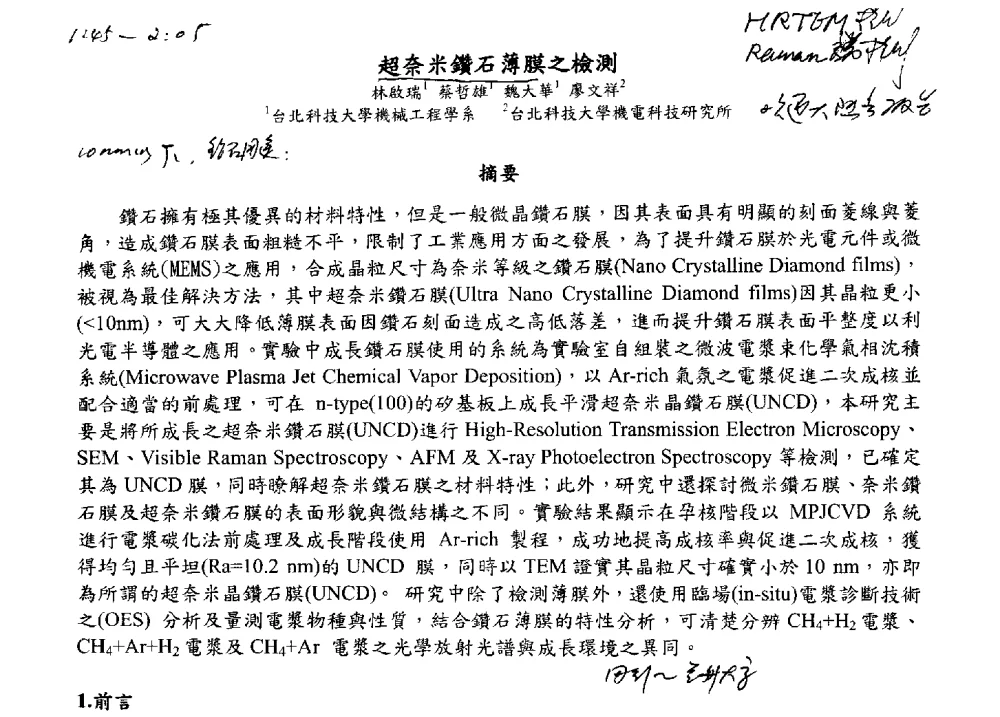 1:45 - 2:05
HRTEM
Raman
超奈米鑽石薄膜之檢測
林啟瑞1 蔡哲雄1 魏大華1 廖文祥2
1台北科技大學機械工程學系 2台北科技大學機電科技研究所
摘要
鑽石擁有極其優異的材料特性，但是一般微晶鑽石膜，因其表面具有明顯的刻面菱線與菱
角，造成鑽石膜表面粗糙不平，限制了工業應用方面之發展，為了提升鑽石膜於光電元件或微
機電系統(MEMS)之應用，合成晶粒尺寸為奈米等級之鑽石膜(Nano Crystalline Diamond films)，
被視為最佳解決方法，其中超奈米鑽石膜(Ultra Nano Crystalline Diamond films)因其晶粒更小
(<10nm)，可大大降低薄膜表面因鑽石刻面造成之高低落差，進而提升鑽石膜表面平整度以利
光電半導體之應用。實驗中成長鑽石膜使用的系統為實驗室自組裝之微波電漿束化學氣相沈積
系統(Microwave Plasma Jet Chemical Vapor Deposition)，以 Ar-rich 氣氛之電漿促進二次成核並
配合適當的前處理，可在 n-type(100)的矽基板上成長平滑超奈米晶鑽石膜(UNCD)，本研究主
要是將所成長之超奈米鑽石膜(UNCD)進行 High-Resolution Transmission Electron Microscopy、
SEM、Visible Raman Spectroscopy、AFM 及 X-ray Photoelectron Spectroscopy 等檢測，已確定
其為 UNCD 膜，同時瞭解超奈米鑽石膜之材料特性；此外，研究中還探討微米鑽石膜、奈米鑽
石膜及超奈米鑽石膜的表面形貌與微結構之不同。實驗結果顯示在孕核階段以 MPJCVD 系統
進行電漿碳化法前處理及成長階段使用 Ar-rich 製程，成功地提高成核率與促進二次成核，獲
得均勻且平坦(Ra=10.2 nm)的 UNCD 膜，同時以 TEM 證實其晶粒尺寸確實小於 10 nm，亦即
為所謂的超奈米晶鑽石膜(UNCD)。 研究中除了檢測薄膜外，還使用臨場(in-situ)電漿診斷技術
之(OES) 分析及量測電漿物種與性質，結合鑽石薄膜的特性分析，可清楚分辨 CH4+H2 電漿、
CH4+Ar+H2 電漿及 CH4+Ar 電漿之光學放射光譜與成長環境之異同。
1.前言